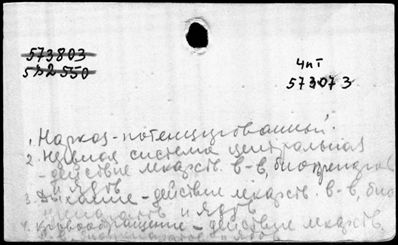 573803
522550
Чпт
573073
1. Наркоз-потенцированный.
2. Нервная система центральная
- действие лекарств. в-в, биопрепаратов
и ядов
3. Дыхание - действие лекарств. в-в, био
и ядов
4. Кровообращение - действие лекарств.